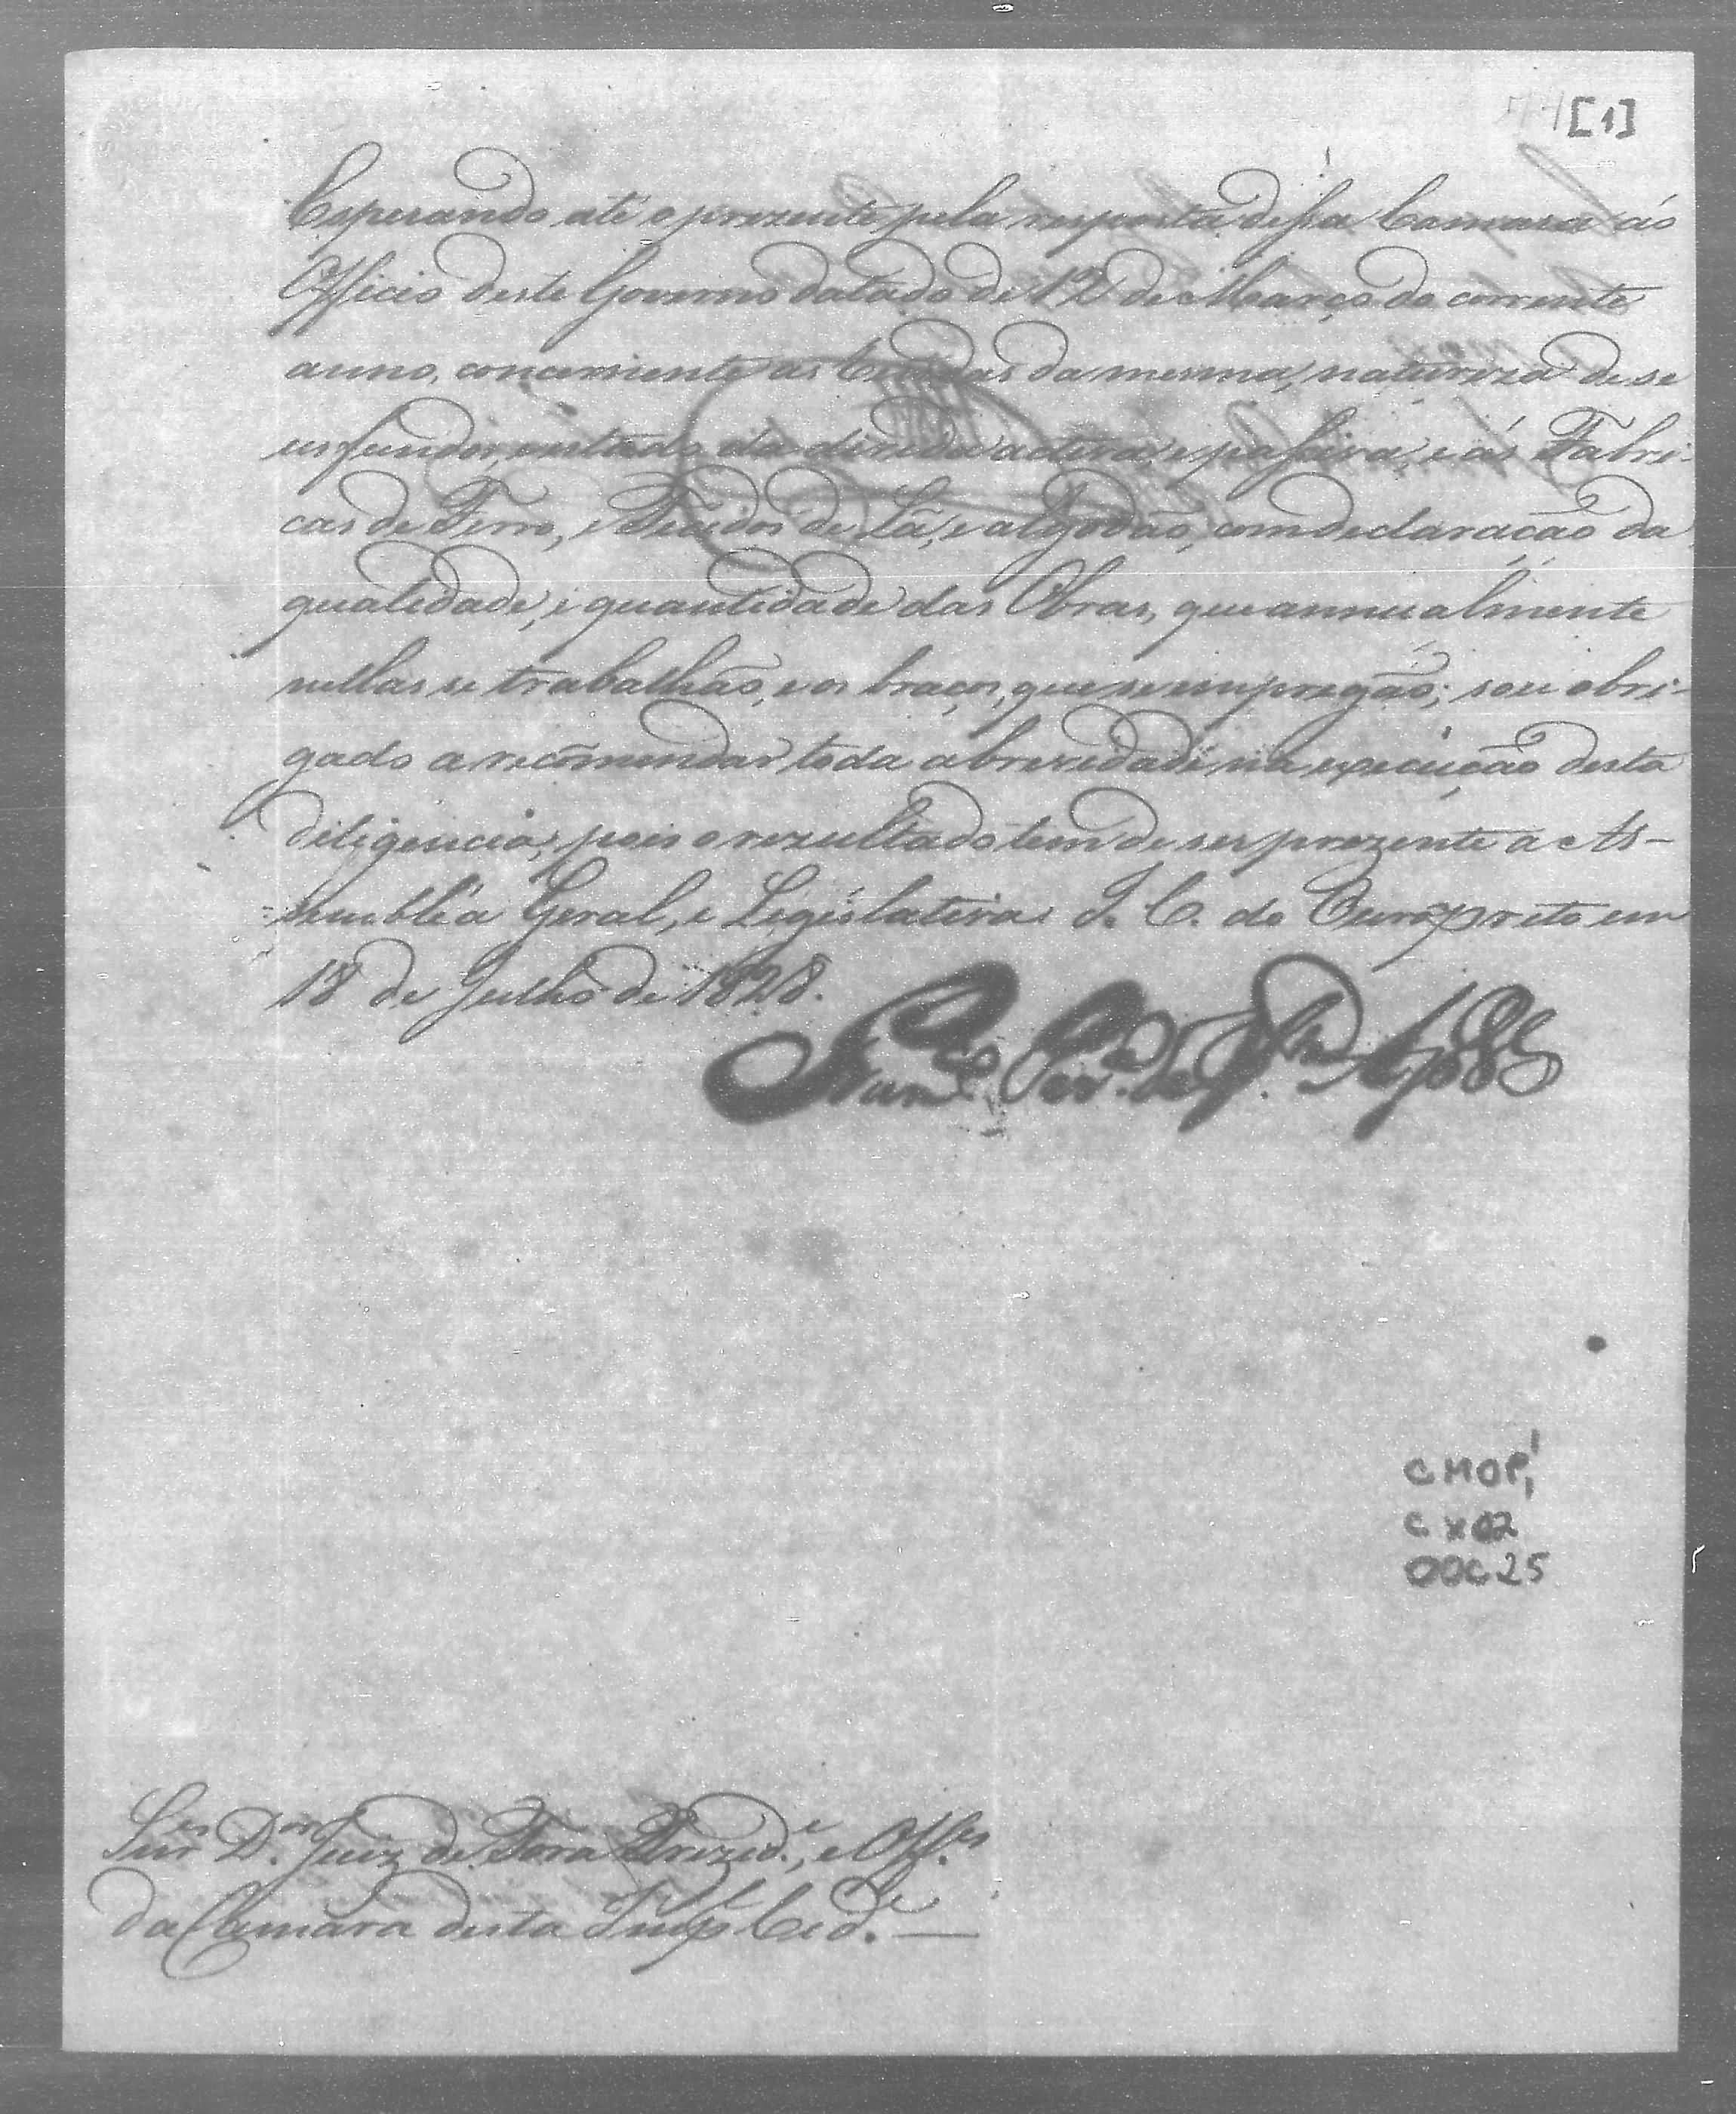 [1]
Esperando até o prezente pela resposta dessa Camara áo
Officio deste Governo datado de 12 de Março do corrente
anno, concerniente as Rendas da mesma, natureza de se
us fundos, estado da divida activa, e passiva, e ás Fabri-
cas de Ferro, e Tecidos de Lã, e algodão, com declaração da
qualidade, e quantidade das Obras, que annualmente
nellas se trabalhão, e os braços, que se empregão; sou obri-
gado a recõmendar toda a brevidade na execução desta
diligencia; pois o rezultado tem de ser prezente a As-
sembléa Geral, e Legislativa. I. C. do Ouro preto em
18 de Julho de 1828.
Fran.co Per.a de S.ta Apol.a
Snr.es D.or Juiz de Fora Prezid.e, e Off.es
da Camara desta Imp.l Cid.e —
CMOP
CX 02
DOC 25